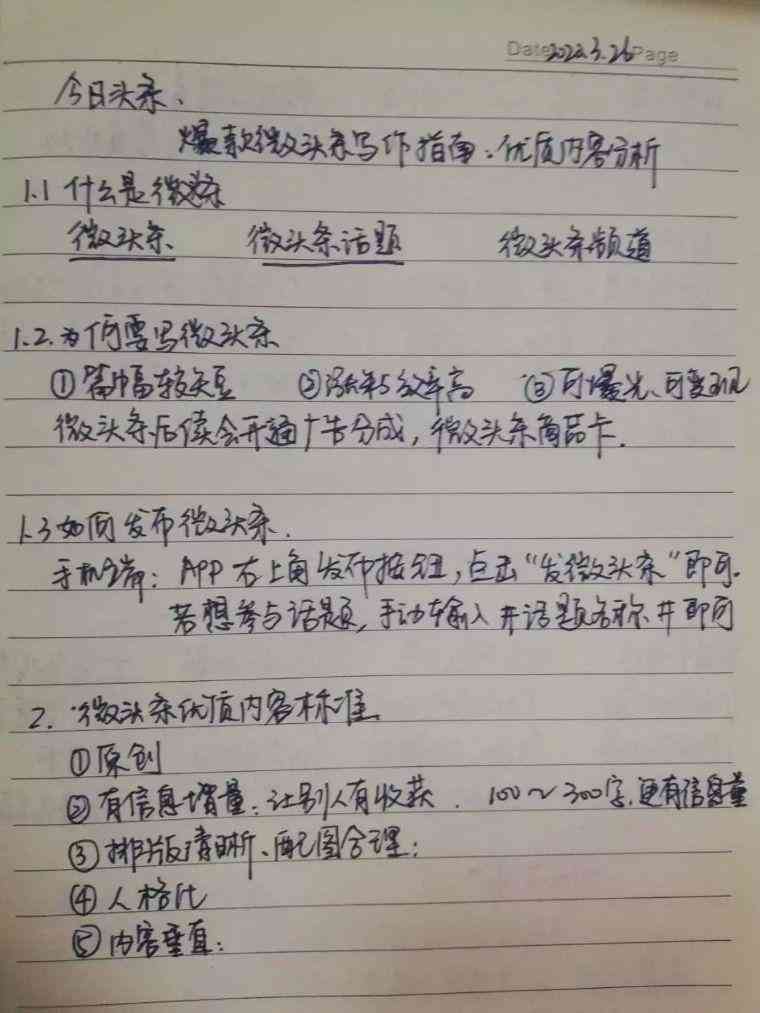 Date 2022.3.26 Page
今日头条、
爆款微头条写作指南：优质内容分析
1.1 什么是微头条
微头条 微头条话题 微头条频道
1.2.为何要写微头条
①篇幅较短 ②涨粉效率高 ③可曝光、可变现
微头条后续会开通广告分成，微头条商品卡.
1.3如何发布微头条.
手机端：APP右上角发布按钮，点击“发微头条”即可.
若想参与话题，手动输入#话题名称#即可
2.微头条优质内容标准
①原创
②有信息增量：让别人有收获. 100～300字，更有信息量
③排版清晰、配图合理；
④人格化
⑤内容垂直；